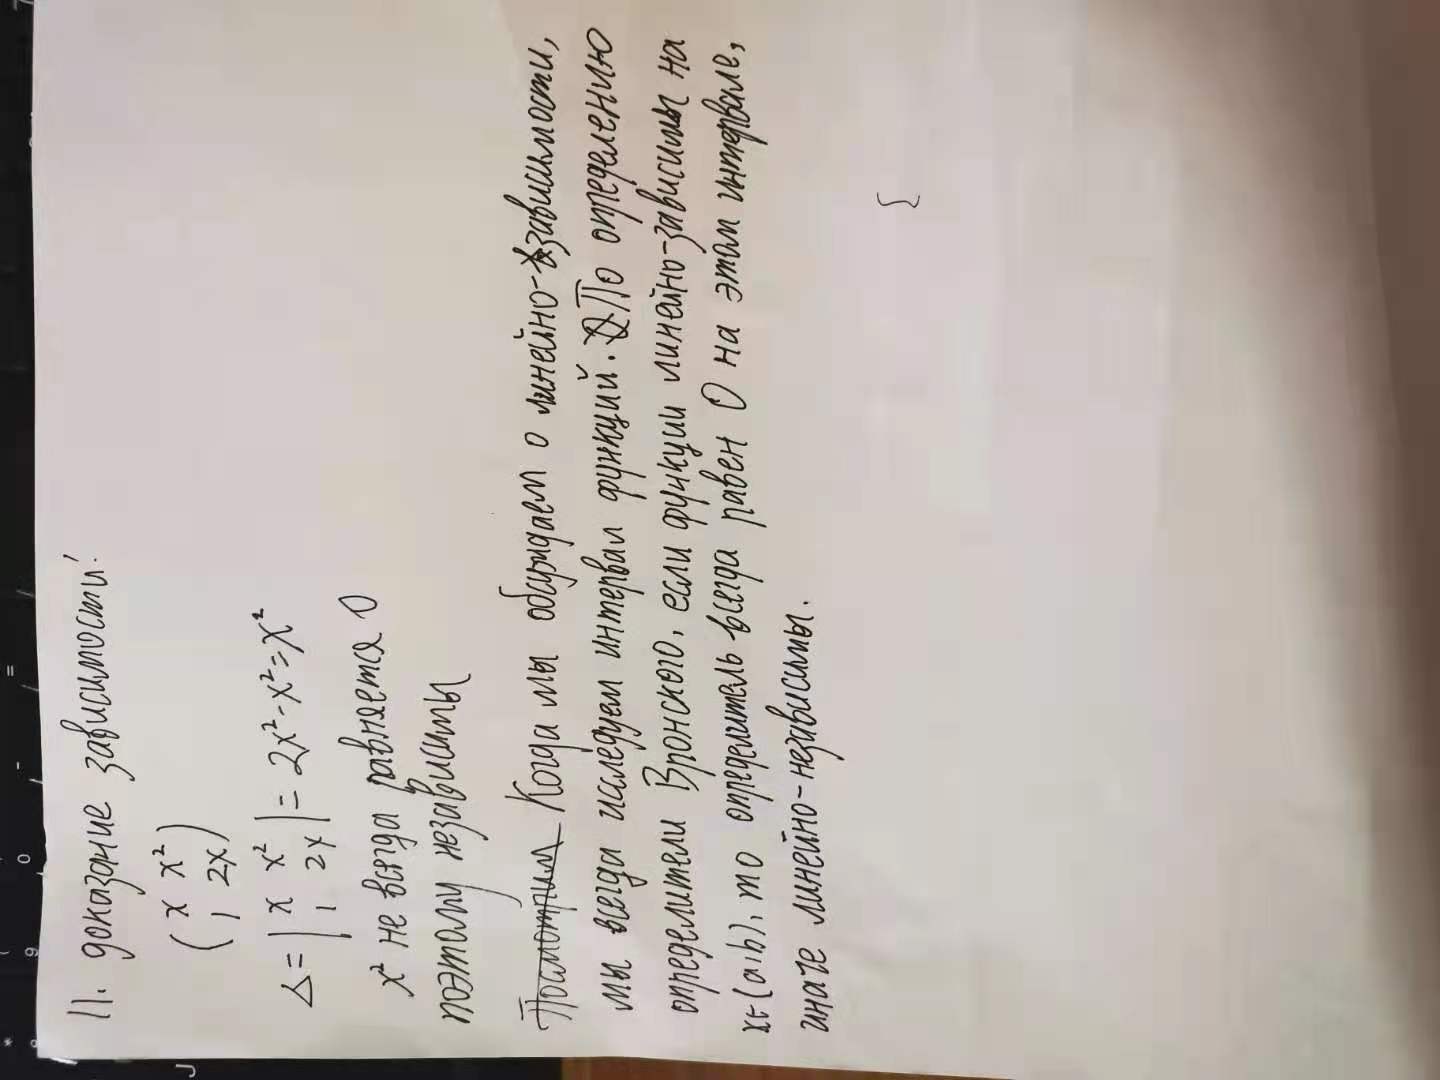 11. доказание зависимости!
( x x²
1 2x )
Δ = | x x²
1 2x | = 2x² - x² = x²
x² не всегда равняется 0
поэтому независимы
Посмотрим Когда мы обсуждаем о линейно-зависимости,
мы всегда исследуем интервал функций. По определению
определители Вронского, если функции линейно-зависимы на
x∈(a,b), то определитель всегда равен 0 на этом интервале,
иначе линейно-независимы.
{